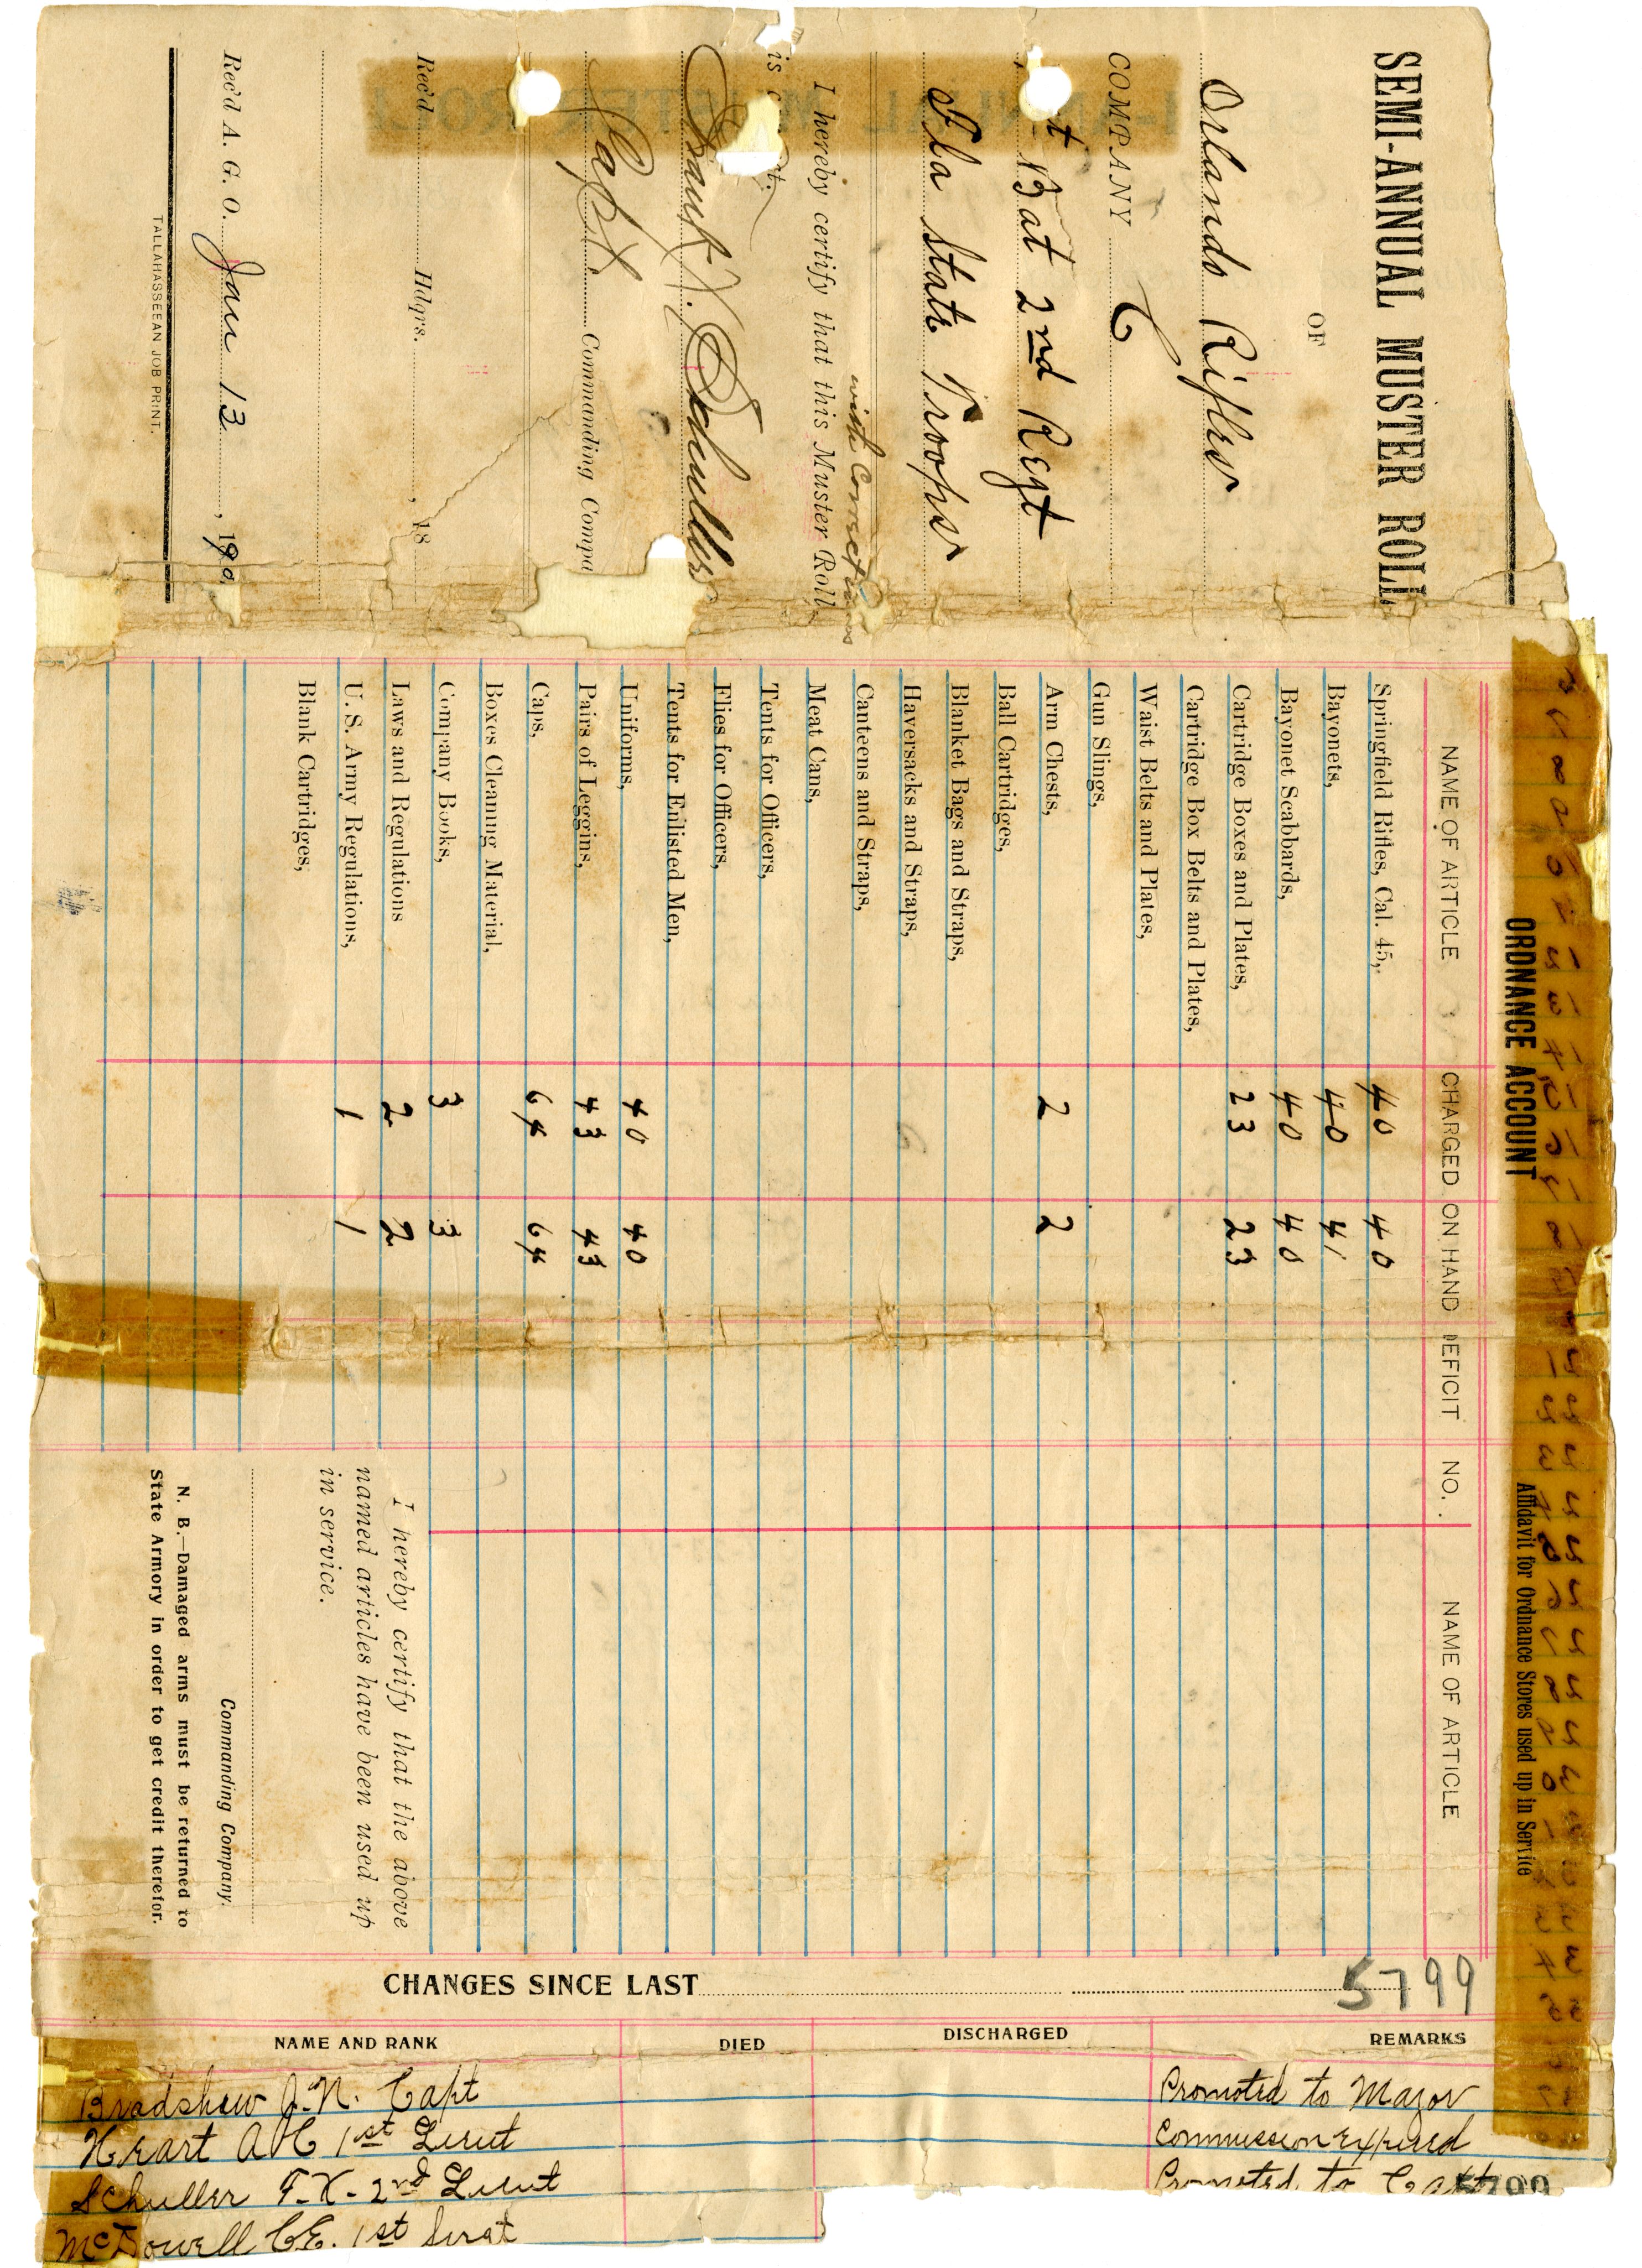 SEMI-ANNUAL MUSTER ROLL
OF
Orlando Rifles
COMPANY C
Bat 2nd Regt
Fla State Troops
with corrections
I hereby certify that this Muster Roll,
is
Frank X. Schuller
Capt. Commanding Compa
Rec'd Hdqrs. , 18
Rec'd A. G. O. Jan 13 , 190
TALLAHASSEEAN JOB PRINT.
ORDNANCE ACCOUNT
NAME OF ARTICLE CHARGED ON HAND DEFICIT
Springfield Rifles, Cal. 45, 40 40
Bayonets, 40 41
Bayonet Scabbards, 40 40
Cartridge Boxes and Plates, 23 23
Cartridge Box Belts and Plates,
Waist Belts and Plates,
Gun Slings,
Arm Chests, 2 2
Ball Cartridges,
Blanket Bags and Straps,
Haversacks and Straps,
Canteens and Straps,
Meat Cans,
Tents for Officers,
Flies for Officers,
Tents for Enlisted Men,
Uniforms, 40 40
Pairs of Leggins, 43 43
Caps, 64 64
Boxes Cleaning Material,
Company Books, 3 3
Laws and Regulations 2 2
U. S. Army Regulations, 1 1
Blank Cartridges,
Affidavit for Ordnance Stores used up in Service
NO. NAME OF ARTICLE
I hereby certify that the above
named articles have been used up
in service.
Commanding Company.
N. B.—Damaged arms must be returned to
State Armory in order to get credit therefor.
5799
CHANGES SINCE LAST
NAME AND RANK DIED DISCHARGED REMARKS
Bradshaw J. N. Capt Promoted to Major
Heart A C 1st Lieut Commission Expired
Schuller F. X. 2nd Lieut Promoted to Capt
5799
McDowell C E. 1st Sergt